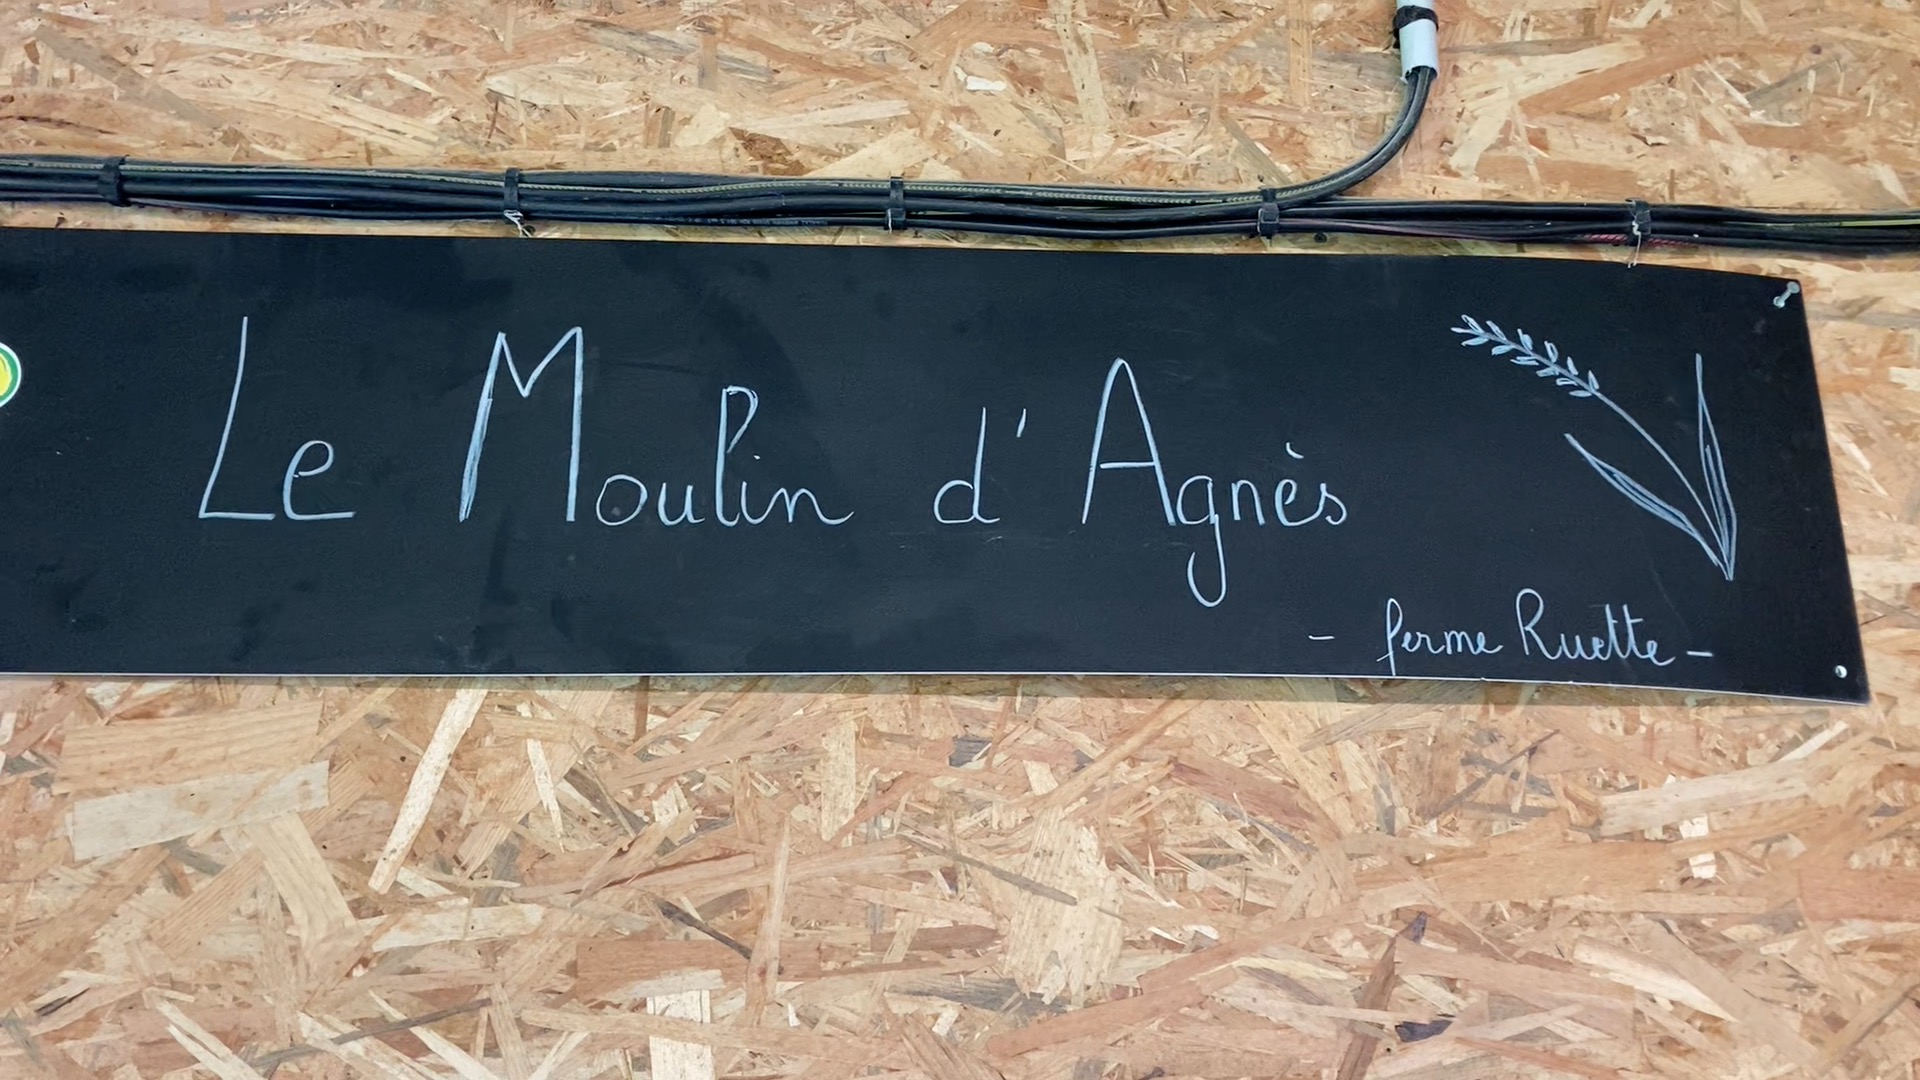 Le Moulin d'Agnès
- ferme Ruette -